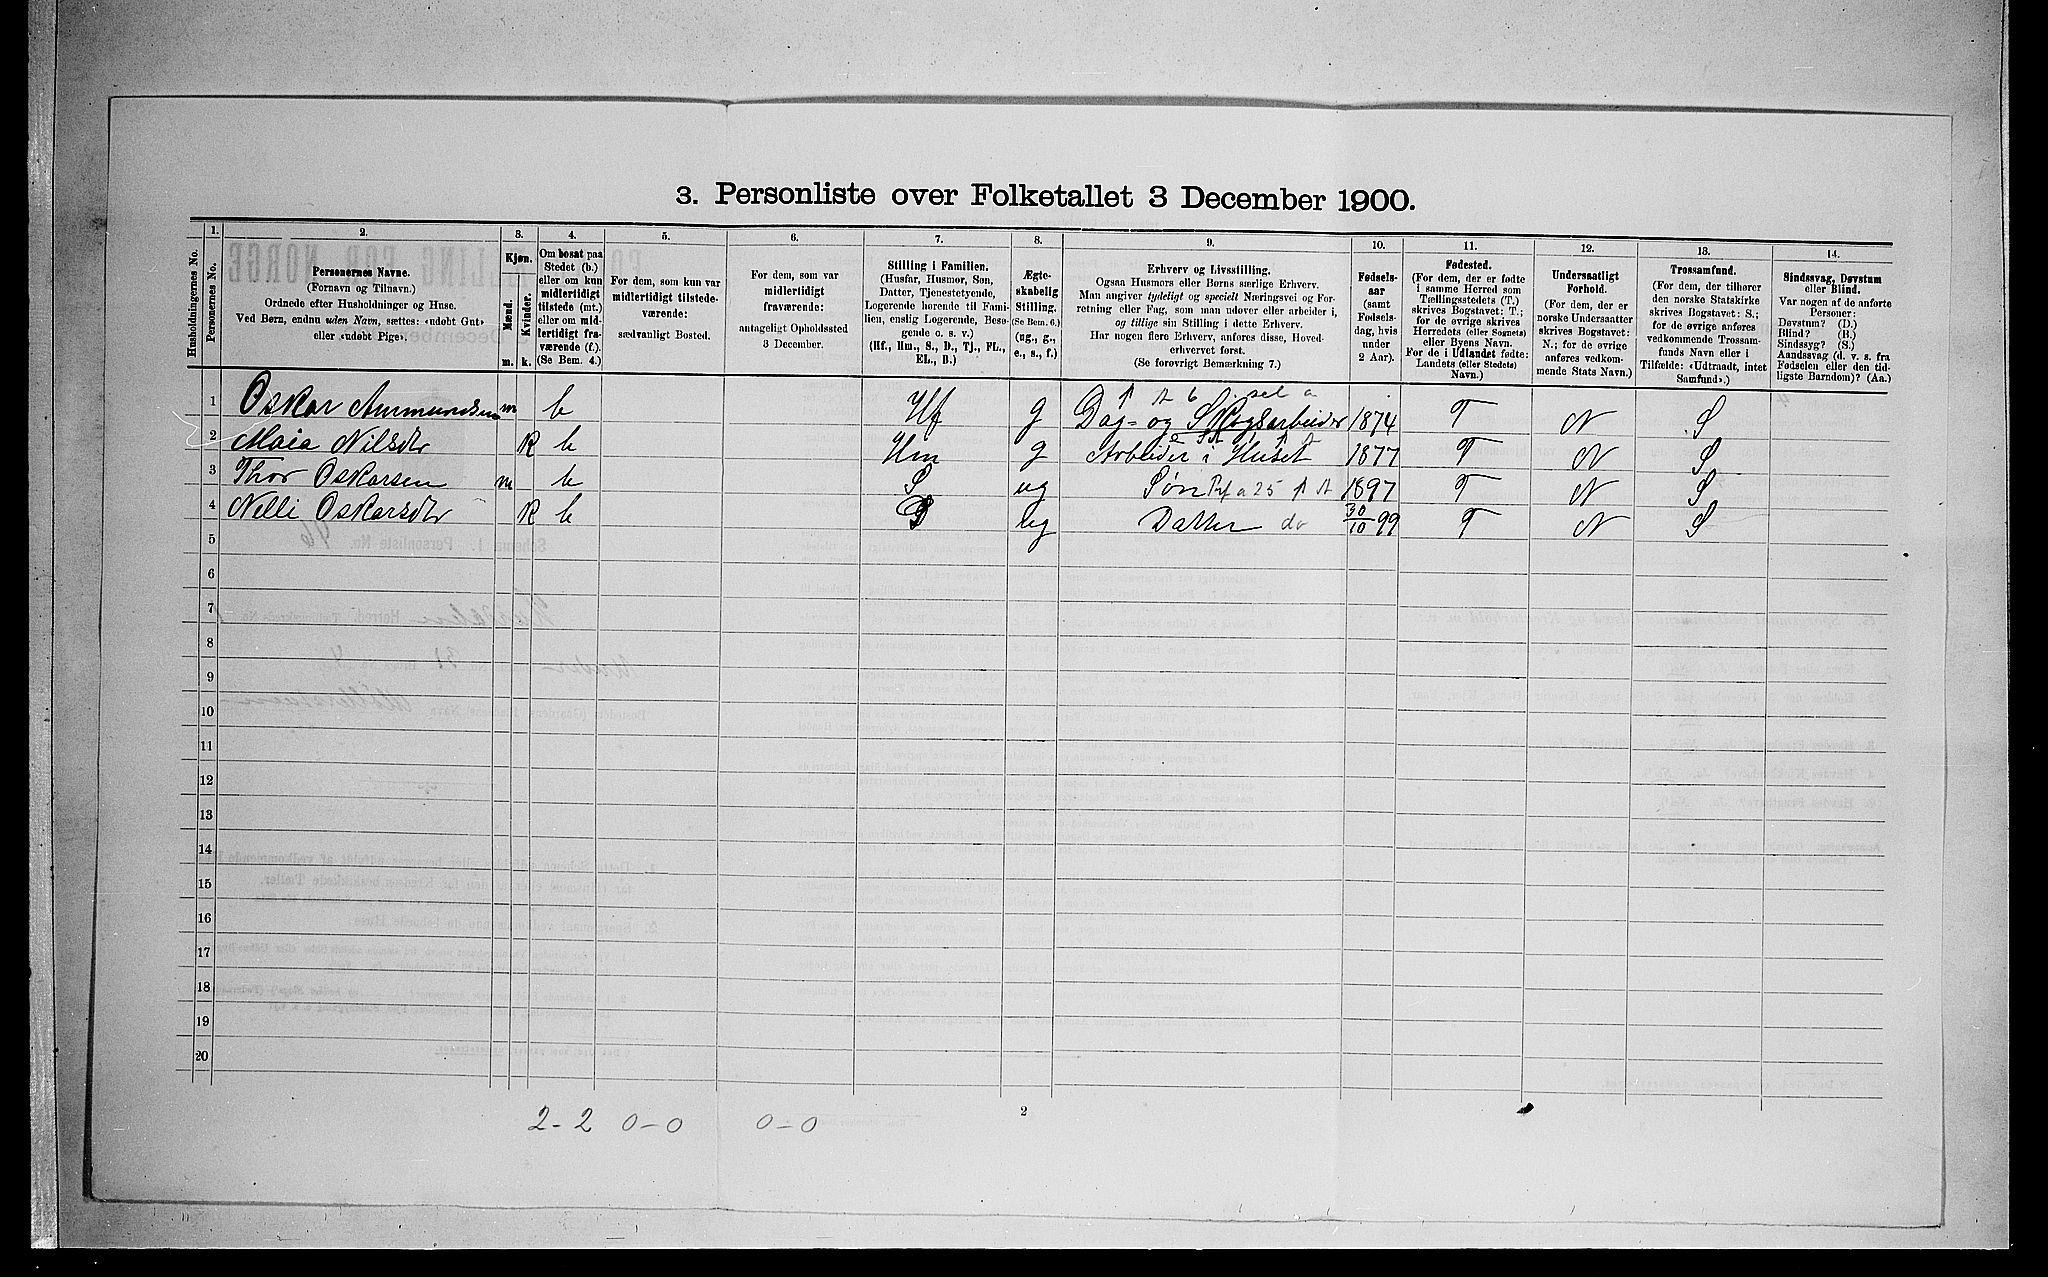 3. Personliste over Folketallet 3 December 1900.
1. 2. 3. 4. 5. 6. 7. 8. 9. 10. 11. 12. 13. 14.
Husholdningernes No.
Personernes No.
Personernes Navne.
(Fornavn og Tilnavn.)
Ordnede efter Husholdninger og Huse.
Ved Børn, endnu uden Navn, sættes: «udøbt Gut»
eller «udøbt Pige».
Kjøn.
Mænd.
Kvinder.
m. k.
Om bosat paa
Stedet (b.)
eller om kun
midlertidigt
tilstede (mt.)
eller om mid-
lertidigt fra-
værende (f.)
(Se Bem. 4.)
For dem, som kun var
midlertidigt tilstede-
værende:
sædvanligt Bosted.
For dem, som var
midlertidigt
fraværende:
antageligt Opholdssted
3 December.
Stilling i Familien.
(Husfar, Husmor, Søn,
Datter, Tjenestetyende,
Logerende hørende til Fami-
lien, enslig Logerende, Besø-
gende o. s. v.)
(Hf., Hm., S., D., Tj., FL.,
EL., B.)
Ægte-
skabelig
Stilling.
(Se Bem. 6.)
(ug., g.,
e., s., f.)
Erhverv og Livsstilling.
Ogsaa Husmors eller Børns særlige Erhverv.
Man angiver tydeligt og specielt Næringsvei og For-
retning eller Fag, som man udøver eller arbeider i,
og tillige sin Stilling i dette Erhverv.
Har nogen flere Erhverv, anføres disse, Hoved-
erhvervet først.
(Se forøvrigt Bemærkning 7.)
Fødsels-
aar
(samt
Fødsels-
dag, hvis
under
2 Aar).
Fødested.
(For dem, der er fødte
i samme Herred som
Tællingsstedets (T.)
skrives Bogstavet: T.;
for de øvrige skrives
Herredets (eller Sognets)
eller Byens Navn.
For de i Udlandet fødte:
Landets (eller Stedets)
Navn.)
Undersaatligt
Forhold.
(For dem, der er
norske Undersaatter
skrives Bogstavet:
N.; for de øvrige
anføres vedkom-
mende Stats Navn.)
Trossamfund.
(For dem, der tilhører
den norske Statskirke
skrives Bogstavet: S.;
for de øvrige anføres
vedkommende Trossam-
funds Navn eller i
Tilfælde: «Udtraadt, intet
Samfund».)
Sindssvag, Døvstum
eller Blind.
Var nogen af de anførte
Personer:
Døvstum? (D.)
Blind? (B.)
Sindssyg? (S.)
Aandssvag (d. v. s. fra
Fødselen eller den tid-
ligste Barndom)? (Aa.)
1 Oskar Aamundsen m b Hf g Dag- og Skogsarbeider 1874 T N S
2 Maia Nilsdtr K b Hm g Arbeider i Huset 1877 T N S
3 Thor Oskarsen m b S ug Søn 1897 T N S
4 Nelli Oskarsdtr K b D ug Datter do 30/10 99 T N S
5
6
7
8
9
10
11
12
13
14
15
16
17
18
19
20
2-2 0-0 0-0 2